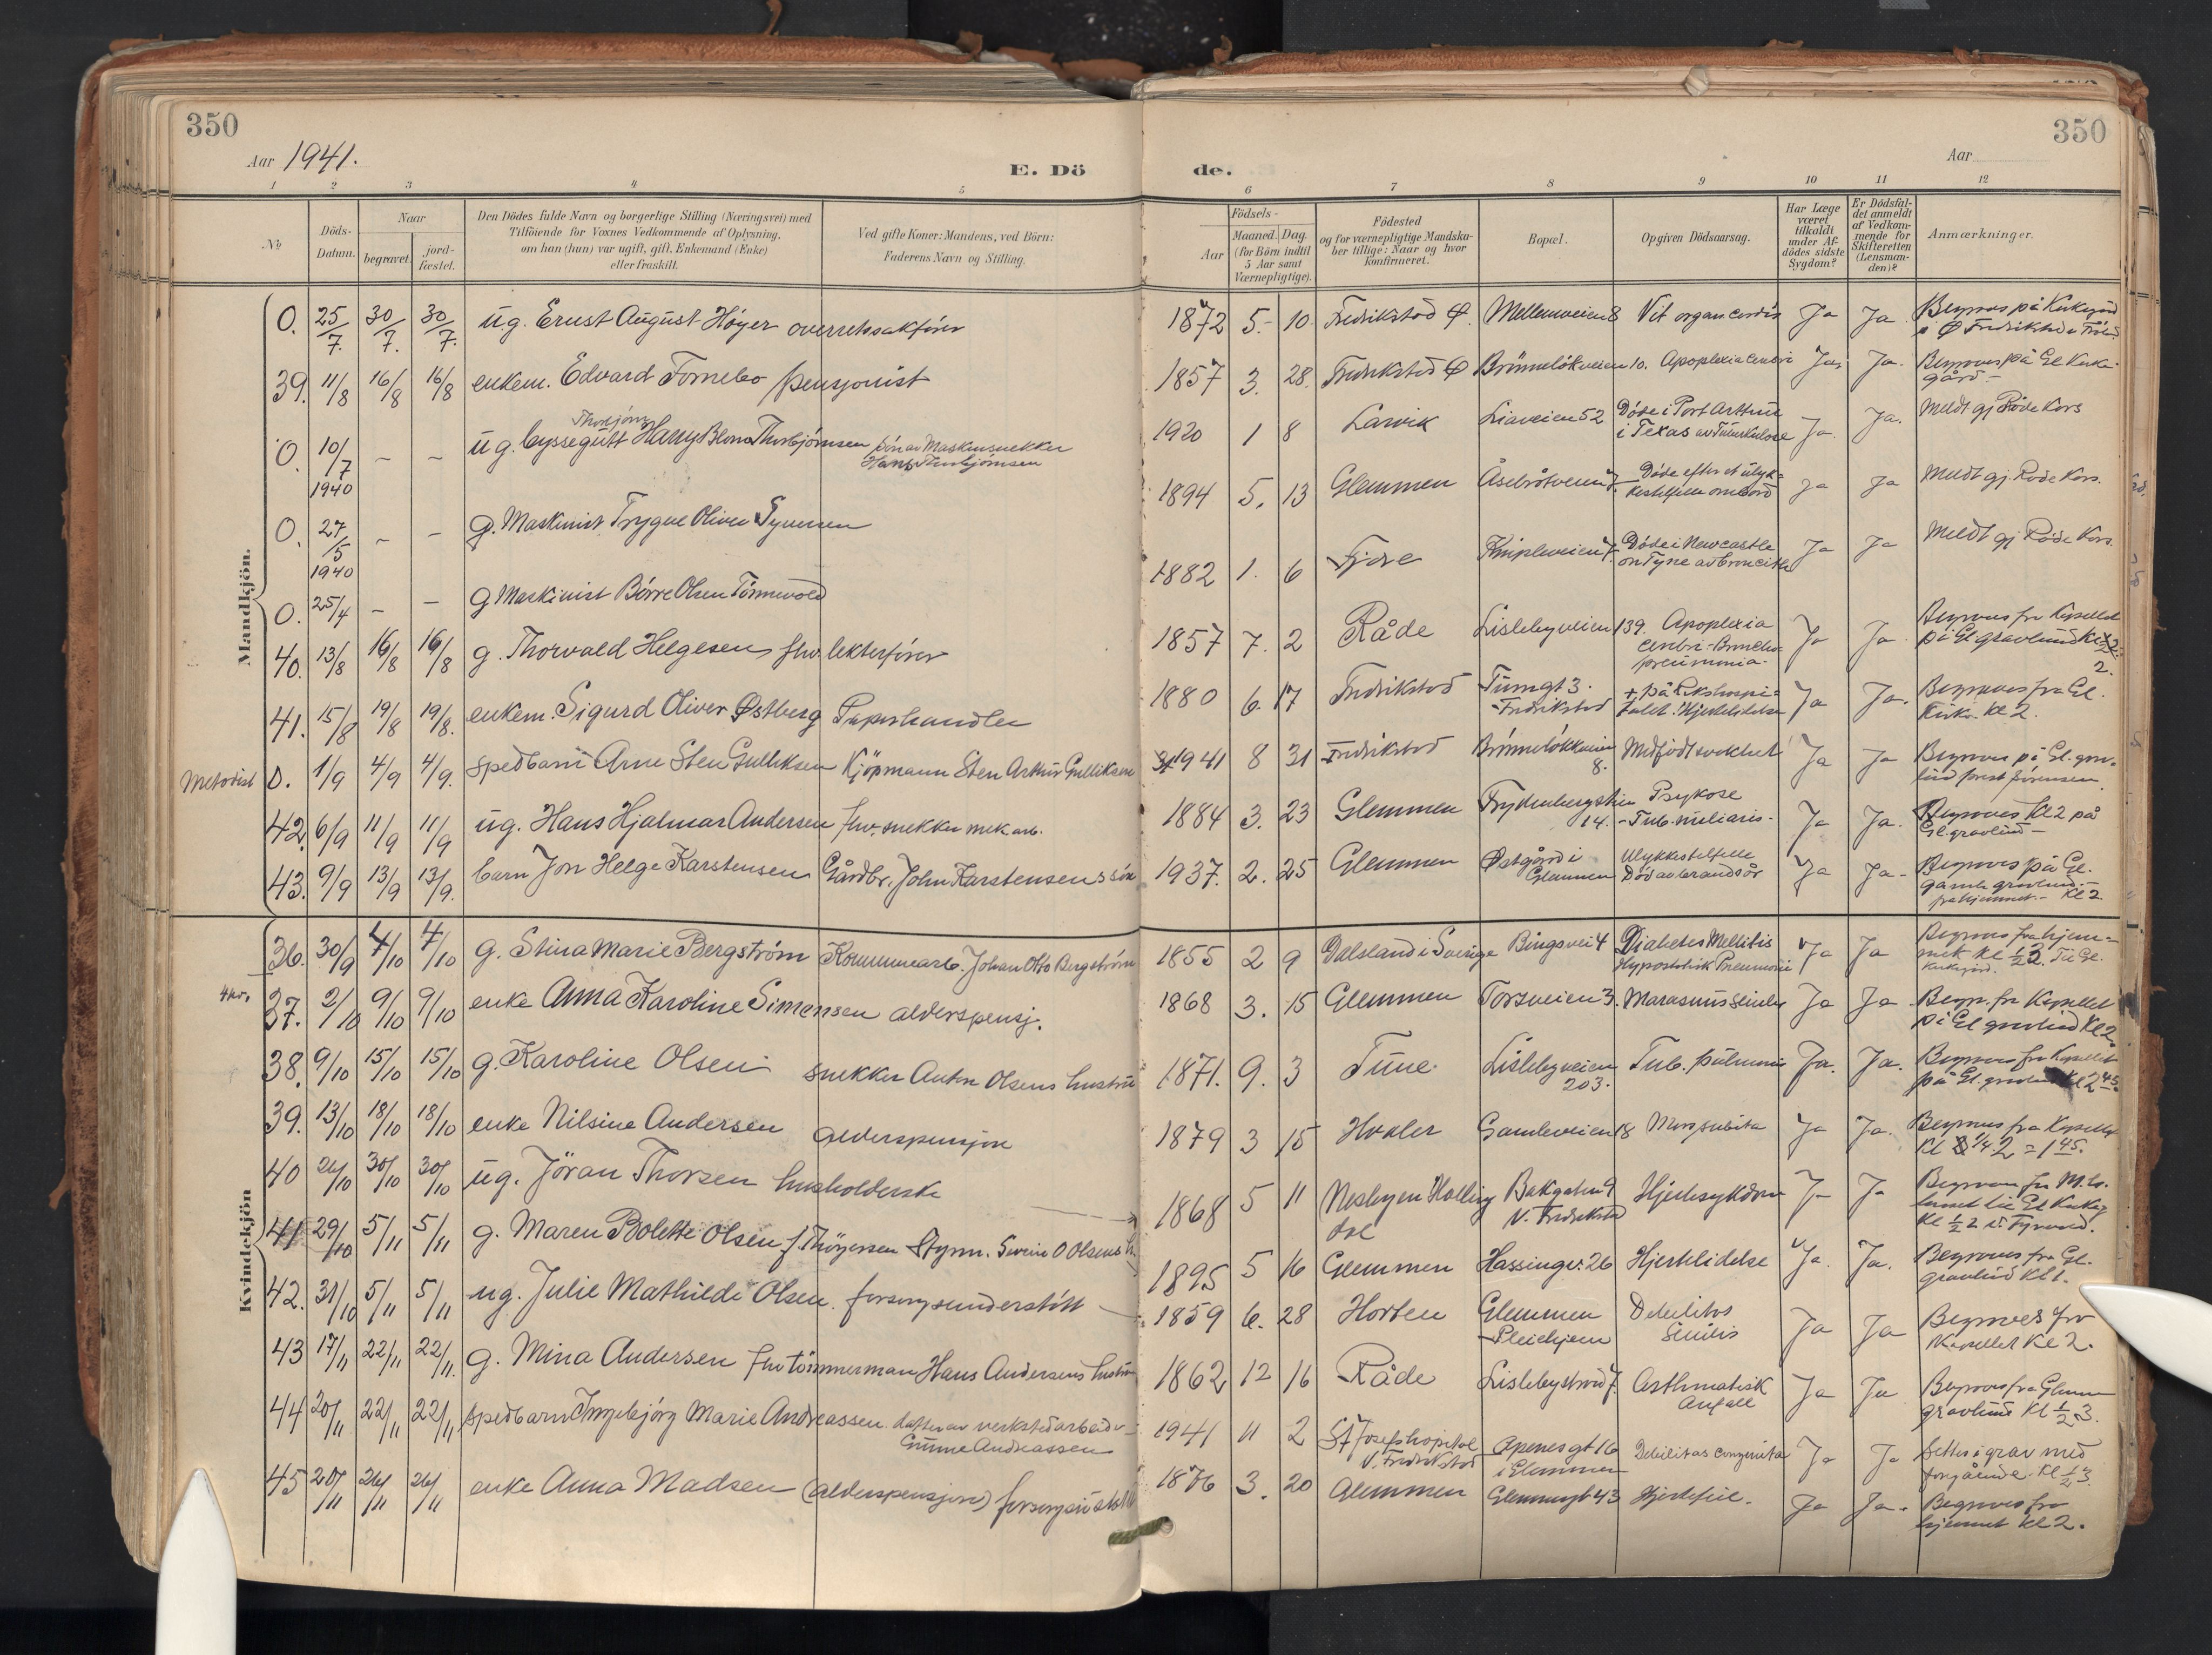 350
Aar 1941.
E. Dö
1 2 3 4 5
No
Döds-
Datum.
Naar
begravet.
jord-
fæstet.
Den Dödes fulde Navn og borgerlige Stilling (Næringsvei) med
Tilföiende for Voxnes Vedkommende af Oplysning,
om han (hun) var ugift, gift, Enkemand (Enke)
eller fraskilt.
Ved gifte Koner: Mandens, ved Börn:
Faderens Navn og Stilling.
Mandkjön.
O. 25/7. 30/7. 30/7. ug. Ernst August Høyer overretssakfører
39. 11/8 16/8 16/8 enkem. Edvard Fornebo pensjonist
Thorbjörn
O. 10/7 1940 – – ug. byssegutt Harry Blom Thorbjörnsen sön av Maskinsnekker
Hans Thorbjörnsen
O. 27/5 1940 – – g. Maskinist Trygve Oliver Syversen
O. 25/4 – – g Maskinist Börre Olsen Törnevold
40. 13/8 16/8 16/8 g. Thorvald Helgesen fhv. lekterfører
41. 15/8 19/8 19/8. enkem. Sigurd Oliver Østberg Papirhandler
Metodist O. 1/9 4/9 4/9. spedbarn Arne Sten Gulliksen Kjöpmann Sten Arthur Gulliksen
42. 6/9 11/9 11/9 ug. Hans Hjalmar Andersen fhv. snekker mek arb.
43. 9/9 13/9 13/9. barn Jon Helge Karstensen Gårdbr. John Karstensens sön
Kvindekjön
36. 30/9 4/10 4/10 g. Stina Marie Bergström Kommunearb. Johan Otto Bergström
4kr. 37. 2/10 9/10 9/10 enke Anna Karoline Simensen alderspensj.
38. 9/10 15/10 15/10 g. Karoline Olsen snekker Anton Olsens hustru
39. 13/10 18/10 18/10 enke Nilsine Andersen alderspensjon
40 24/10 30/10 30/10 ug. Jöran Thorsen husholderske
41 29/10 5/11 5/11 g. Maren Bolette Olsen f. Thögersen Styrm. Svein O Olsens h.
42. 31/10 5/11 5/11 ug. Julie Mathilde Olsen. forsorgsunderstött
43 17/11 22/11 22/11. g. Mina Andersen fhv tömmerman Hans Andersens hustru
44 20/11 22/11 22/11 spedbarn Ingebjörg Marie Andreassen datter av verkstedarbeider
Gunne Andreassen
45 20/11 26/11 26/11 enke Anna Madsen (alderspensjon)
350
Aar
de.
6 7 8 9 10 11 12
Födsels-
Aar
Maaned. Dag.
(for Börn indtil
5 Aar samt
Værnepligtige).
Födested
og for værnepligtige Mandska-
ber tillige: Naar og hvor
konfirmeret.
Bopæl.
Opgiven Dödsaarsag.
Har Læge
været
tilkaldt
under Af-
dödes sidste
Sygdom?
Er Dödsfal-
det anmeldt
af Vedkom-
mende for
Skifteretten
(Lensman-
den)?
Anmærkninger.
1872 5.- 10. Fredrikstad Ø. Mellemveien 8 Vit organ cordis Ja Ja Begraves på Kirkegård
i Ø Fredrikstad
1857 3. 28. Fredrikstad Ø Brönnelökveien 10. Apoplexia cerebri Ja Ja. Begraves på Gl Kirke-
gård –
1920 1 8 Larvik Liaveien 52 Döde i Port Arthur
i Texas av Tuberkulose Ja. Ja. Meldt gj Röde Kors
1894 5. 13 Glemmen Åsebråtveien 7. Döde efter et ulyk-
kestilfelle ombord Ja Ja Meldt gj. Röde Kors.
1882 1. 6 Knipleveien 7. Döde i Newcastle
on Tyne av broncitt Ja Ja Meldt gj Röde Kors.
1857 7. 2 Råde Lislebyveien 139. Apoplexia
cerebri - Broncho-
pneumonia. Ja Ja. Begraves fra Kapellet
på Gl. gravlund
1880 6. 17 Fredrikstad Turngt 3.
Fredrikstad + på Rikshospi-
talet. Hjertelidelse Ja Ja. Begraves fra Gl.
Kirke Kl 2.
1941 8 31 Fredrikstad Brönnelökkveien
8. Medfödt svakhet Ja Ja Begraves på Gl. grav-
lund prest Sörensen
1884 3. 23 Glemmen Frydenbergstien
14. Psykose
- Tub. miliaris. Ja Ja. Begraves Kl 2 på
Gl. gravlund –
1937. 2. 25 Glemmen Østgård i
Glemmen Ulykkestilfelle
Död av brandsår Ja Ja. Begraves på Gl.
gamle gravlund. –
fra hjemmet. – Kl 2
1855 2 9 Dalsland i Sverige Bingsvei 4 Diabetes Mellitis
Hypostatisk Pneumoni Ja Ja Begraves fra hjem-
met Kl ½3. Til Gl.
Kirkegård.
1868 3. 15 Glemmen Torsveien 3. Marasmus Senilis Ja Ja Begr. fra Kapellet
på Gl gravlund Kl 2.
1871. 9. 3 Tune Lislebyveien
203. Tub. pulmonum Ja. Ja. Begraves fra Kapellet
på Gl. gravlund Kl 2 45.
1879 3 15 Hvaler Gamleveien 18 Mors subita Ja Ja. Begraves fra Kapellet
Kl ¼ 2 = 1 45.
1868 5 11 Nesbyen Halling
dal Bakgaten 9
V. Fredrikstad Hjertesykdom Ja Ja
1895 5 16 Glemmen Hassinge: 26 Hjertelidelse Ja. Ja. Begraves fra Gl.
gravlund Kl 1.
1859 6. 28 Horten Glemmen
Pleiehjem Debilitas
Senilis Ja Ja Begraves fra
Kapellet Kl 2.
1862 12 16 Råde Lislebystrand 7. Asthmatisk
Anfall Ja Ja Begraves fra Glemmen
gravlund Kl ½ 3.
1941 11 2 St Josefs hospital
V. Fredrikstad Apenesgt 16
i Glemmen Debilitas congenita Ja Ja Settes i grav med
forgående. Kl ½ 3
1876 3. 20 Glemmen Glemmengt 43 Hjertefeil. Ja Ja. Begraves fra
hjemmet Kl 2.